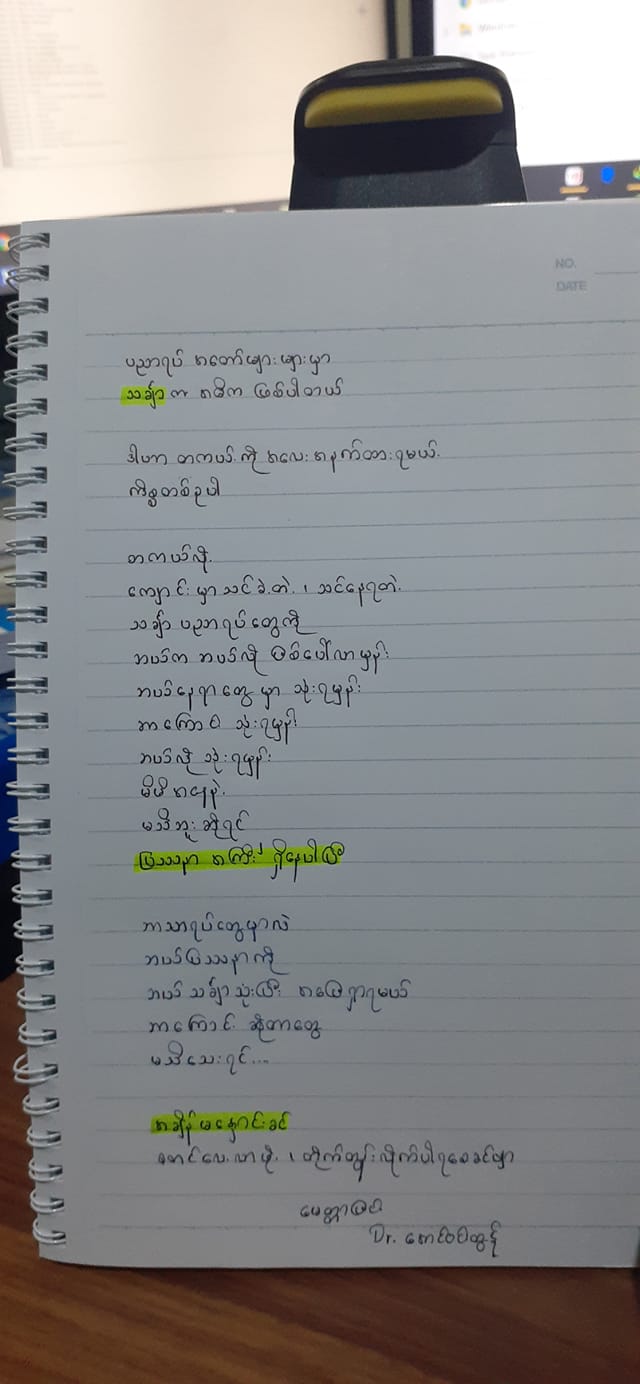 NO.
DATE
ပညာရပ် အတော်များများမှာ
သင်္ချာ က အဓိက ဖြစ်ပါတယ်
ဒါဟာ တကယ့်ကို အလေးအနက်ထားရမယ့်
ကိစ္စတစ်ခုပါ
တကယ်လို့
ကျောင်းမှာသင်ခဲ့တဲ့၊ သင်နေရတဲ့
သင်္ချာ ပညာရပ်တွေကို
ဘယ်က ဘယ်လို ဖြစ်ပေါ်လာမှန်း
ဘယ်နေရာတွေမှာ သုံးရမှန်း
ဘာကြောင့် သုံးရမှန်း
ဘယ်လို သုံးရမှန်း
မိမိအနေနဲ့
မသိဘူးဆိုရင်
ပြဿနာ အကြီးကြီး ရှိနေပါပြီ
ဘာသာရပ်တွေမှာလဲ
ဘယ်ပြဿနာကို
ဘယ် သင်္ချာသုံးပြီး အဖြေရှာရမယ်
ဘာကြောင့် ဆိုတာတွေ
မသိသေးရင်...
အချိန်မနှောင်းခင်
လေ့လာဖို့၊ တိုက်တွန်းလိုက်ပါရစေခင်ဗျာ
မေတ္တာဖြင့်
Dr.